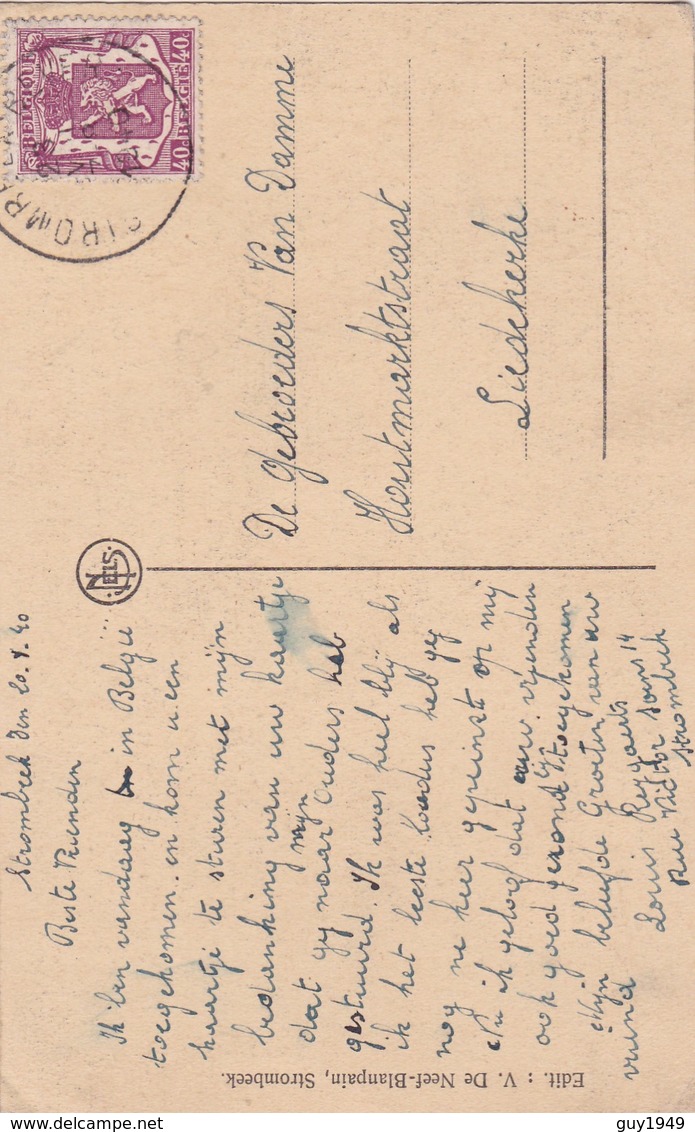 Strombeek den 20.7.40
Beste Vrienden
Ik ben vandaag in België
toegekomen. en kom u een
kaartje te sturen met mijn
bedanking van uw kaartje
dat gy naar mijn ouders heb
gestuurd. Ik was heel blij als
ik het heb
nog ne keer op mij
Nu ik geloof dat uw vrienden
ook goed gezond zijn toegekomen
Mijn beliefde Groeten van uw
vriend Louis Reygaerts
Rue Victor 14
Strombeek
NELS
De Gebroeders Van Damme
Houtmarktstraat
Liedekerke
BELGIQUE 40 40 BELGIE
STROMBEEK
Edit. : V. De Neef-Blanpain, Strombeek.
guy1949